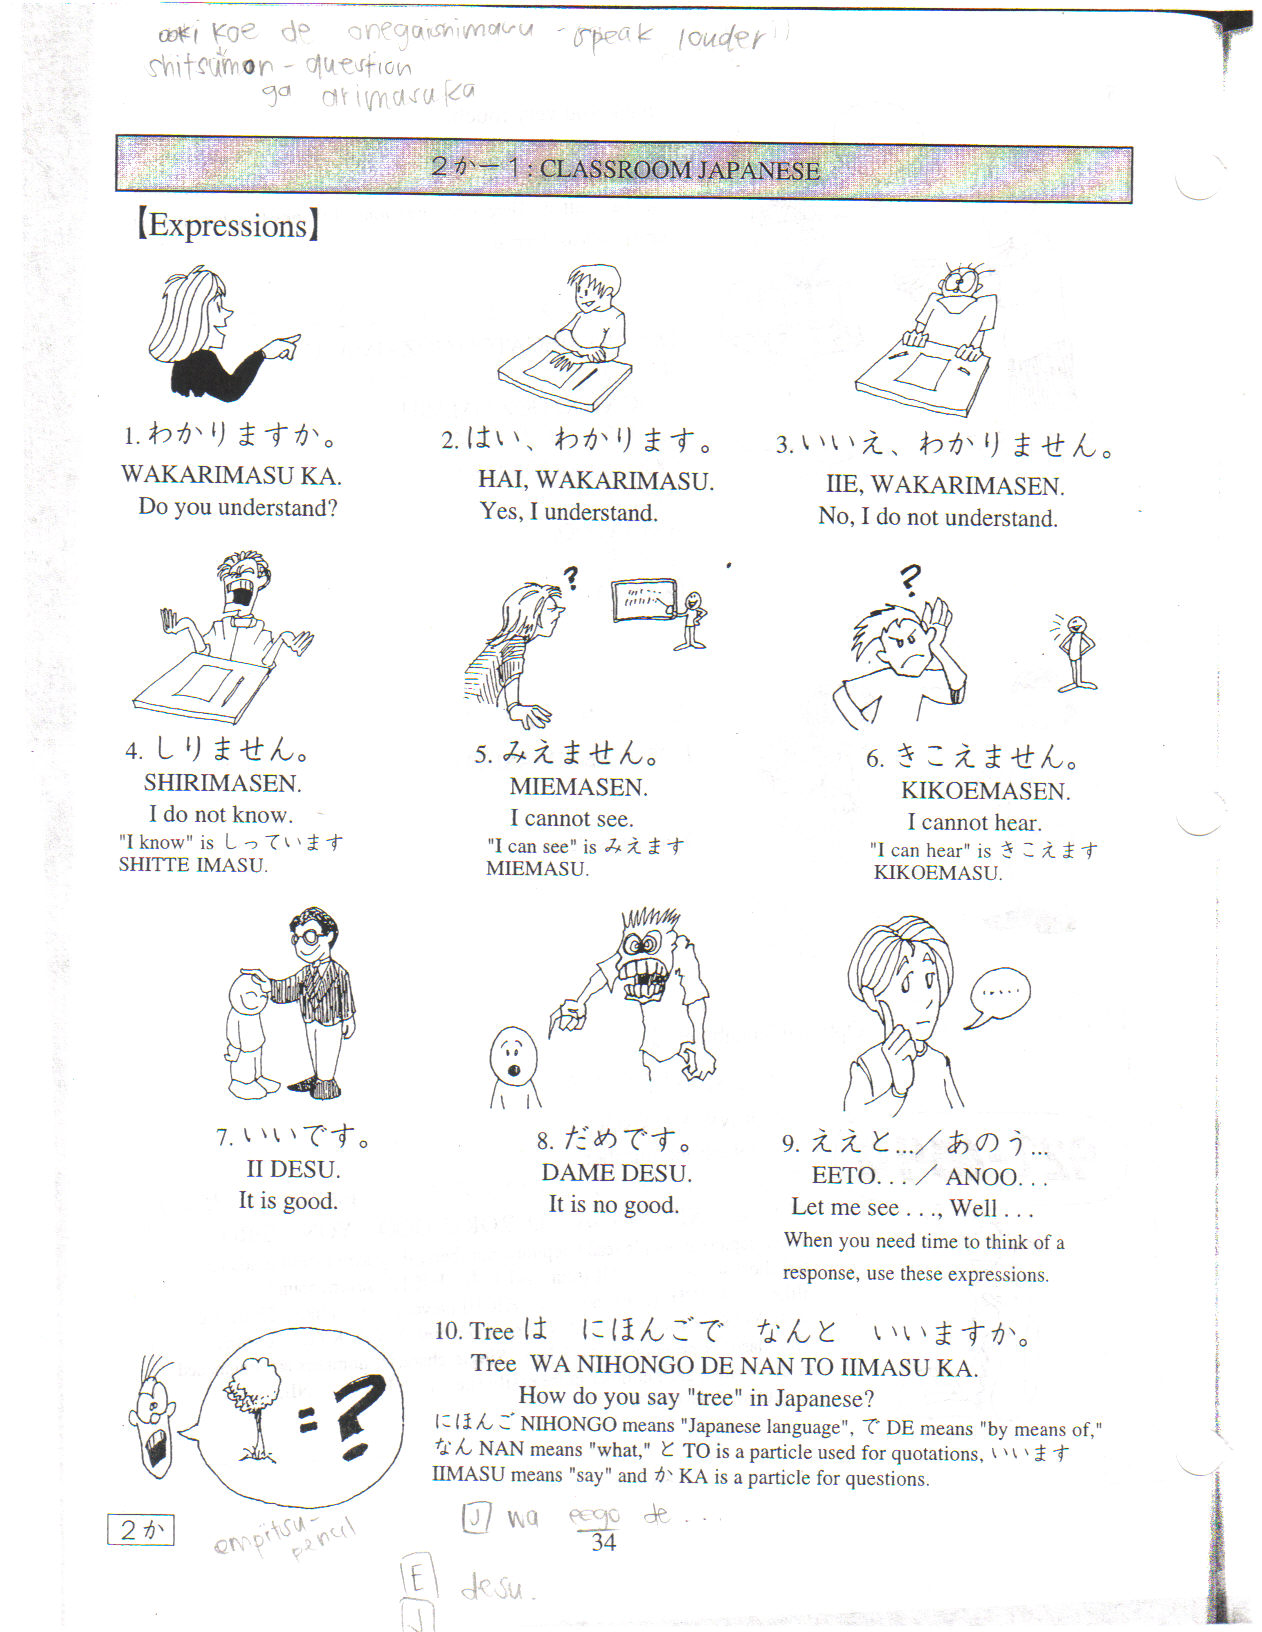 ooki koe de onegaishimasu - speak louder
shitsumon - question
ga arimasuka
2か－1: CLASSROOM JAPANESE
【Expressions】
1. わかりますか。
WAKARIMASU KA.
Do you understand?
2. はい、わかります。
HAI, WAKARIMASU.
Yes, I understand.
3. いいえ、わかりません。
IIE, WAKARIMASEN.
No, I do not understand.
4. しりません。
SHIRIMASEN.
I do not know.
"I know" is しっています
SHITTE IMASU.
?
5. みえません。
MIEMASEN.
I cannot see.
"I can see" is みえます
MIEMASU.
?
6. きこえません。
KIKOEMASEN.
I cannot hear.
"I can hear" is きこえます
KIKOEMASU.
7. いいです。
II DESU.
It is good.
8. だめです。
DAME DESU.
It is no good.
.....
9. ええと…／あのう…
EETO. . . ／ ANOO. . .
Let me see . . ., Well . . .
When you need time to think of a
response, use these expressions.
= ?
10. Tree は　にほんごで　なんと　いいますか。
Tree WA NIHONGO DE NAN TO IIMASU KA.
How do you say "tree" in Japanese?
にほんご NIHONGO means "Japanese language", で DE means "by means of,"
なん NAN means "what," と TO is a particle used for quotations, いいます
IIMASU means "say" and か KA is a particle for questions.
2か
empitsu -
pencil
J wa eego de . . .
34
E desu.
J